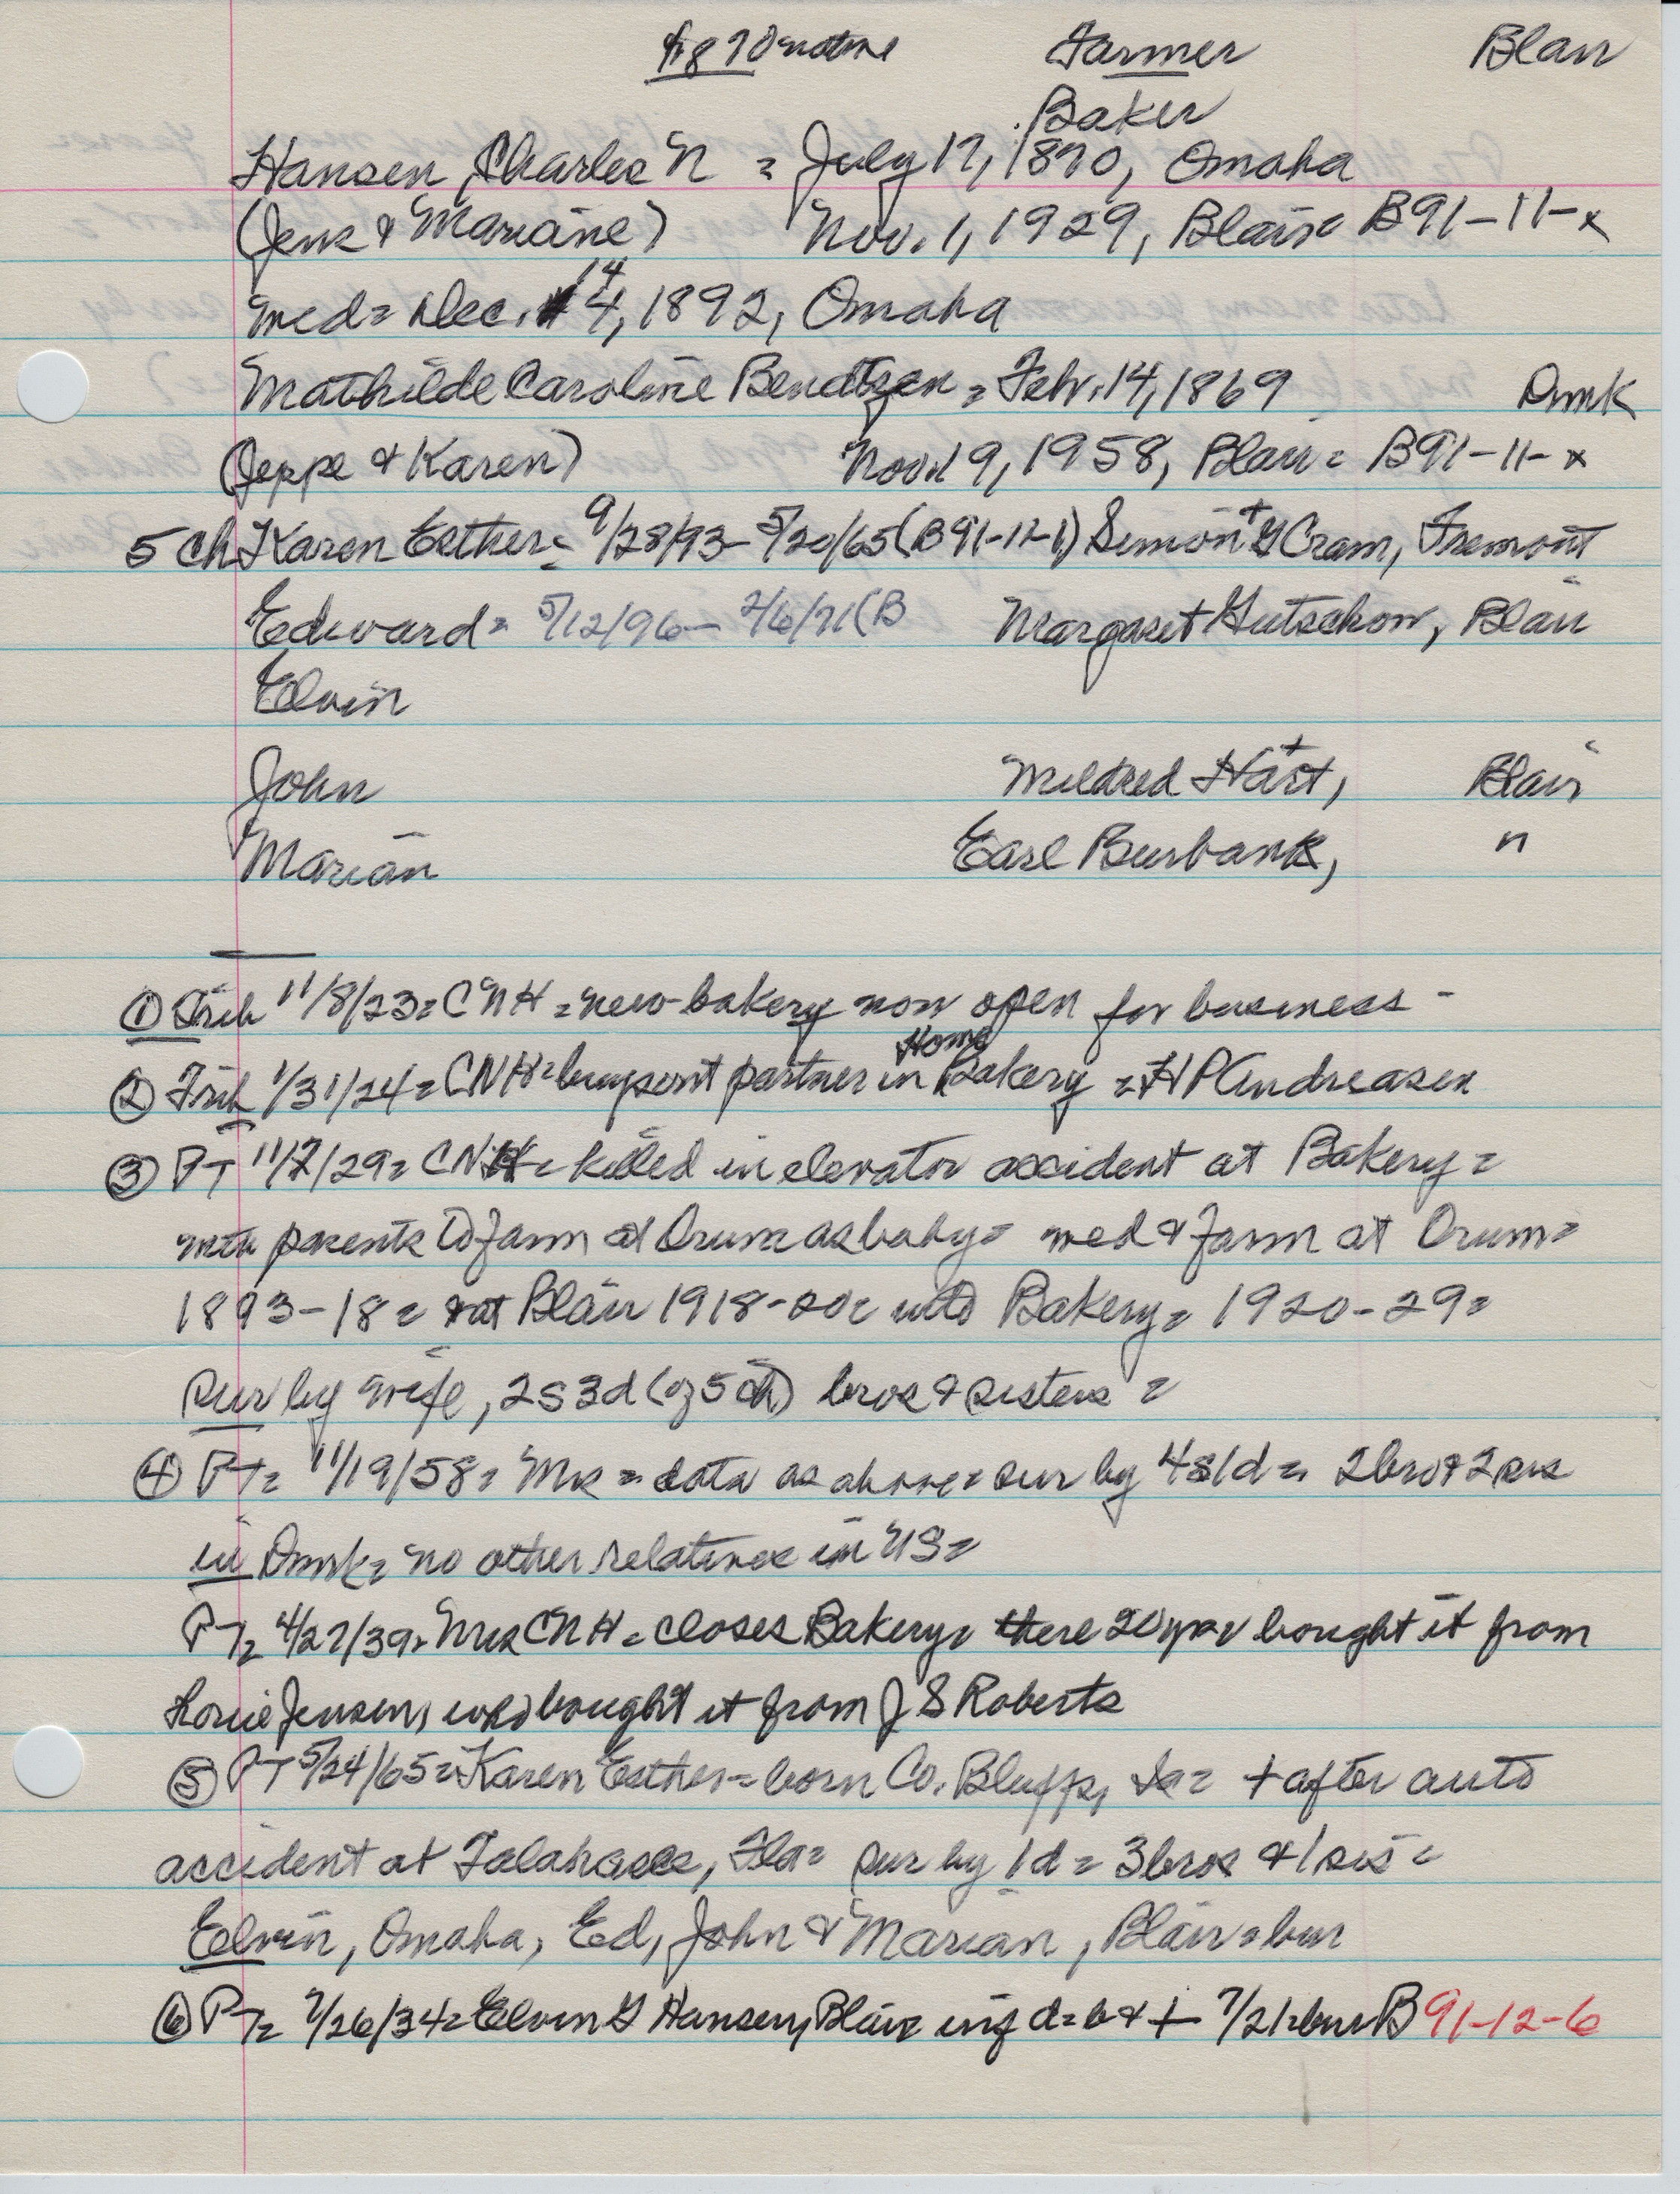 1870 native Farmer Blair
Baker
Hansen, Charles N = July 17, 1870, Omaha
(Jens & Mariane) Nov. 1, 1929, Blair = B91-11-x
med = Dec. 14, 1892, Omaha
Mathilde Caroline Bendtsen = Febr. 14, 1869 Dmk
(Jeppe & Karen) Nov. 19, 1958, Blair = B91-11-x
5 ch Karen Esther = 9/28/93 - 5/20/65 (B91-12-1) Simon + G Cram, Fremont
Edward = 5/12/96 - 2/6/71 (B Margaret Gutschow, Blair
Elvin
John Mildred Hart, + Blair
Marian Earl Burbank, "
① Trib 11/8/23 = CNH = new bakery now open for business -
② Trib 1/31/24 = CNH = buys out partner in Home Bakery = HP Andreasen
③ PT 11/7/29 = CNH = killed in elevator accident at Bakery =
with parents to farm at Orum as baby = med & farm at Orum =
1893-18 = at Blair 1918-20 = into Bakery = 1920-29 =
sur by wife, 2s 3d (of 5 ch) bros & sisters =
④ PT = 11/19/58 = Mrs = data as above = sur by 4s 1d = 2 bro & 2 sis
in Dmk = no other relatives in US =
PT = 4/27/39 = Mrs CNH = closes Bakery = there 20 yrs = bought it from
Louie Jensen, who bought it from J S Roberts
⑤ PT 5/24/65 = Karen Esther = born Co. Bluffs, Ia = + after auto
accident at Talahasee, Fla = sur by 1d = 3 bros & 1 sis =
Elvin, Omaha, Ed, John & Marian, Blair = bur
⑥ PT = 7/26/34 = Elvin G Hansen, Blair inf d = b & + 7/21 = bur B 91-12-6